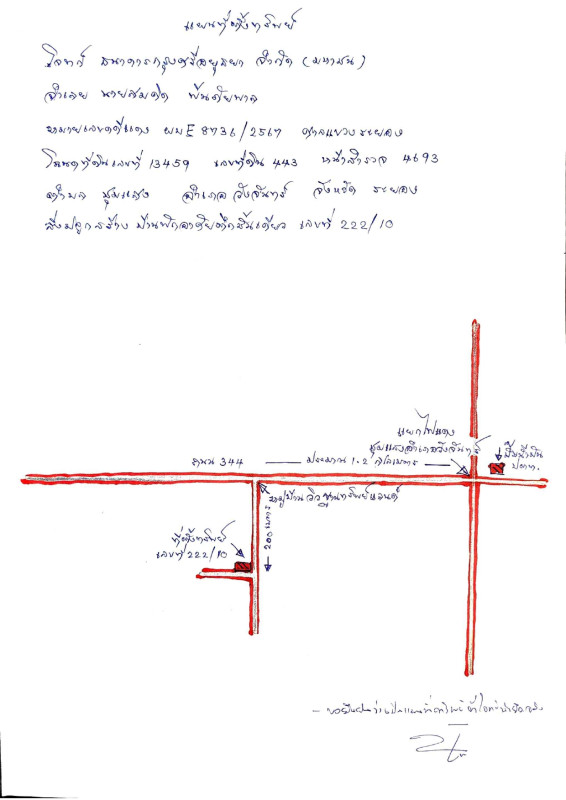 แผนที่ตั้งทรัพย์
โจทก์ ธนาคารกรุงศรีอยุธยา จำกัด (มหาชน)
จำเลย นายสมคิด พันธัยพาล
หมายเลขคดีแดง ผบE 8736/2567 ศาลแขวงระยอง
โฉนดที่ดินเลขที่ 13459 เลขที่ดิน 443 หน้าสำรวจ 4693
ตำบล ชุมแสง อำเภอ วังจันทร์ จังหวัด ระยอง
สิ่งปลูกสร้าง บ้านพักอาศัยตึกชั้นเดียว เลขที่ 222/10
แยกไฟแดง
ชุมแสงอำเภอวังจันทร์
ปั๊มน้ำมัน
ปตท.
ถนน 344
ประมาณ 1.2 กิโลเมตร
หมู่บ้าน ทรัพย์แลนด์
200 เมตร
ที่ตั้งทรัพย์
เลขที่ 222/10
- ขอยืนยันว่าเป็นแผนที่